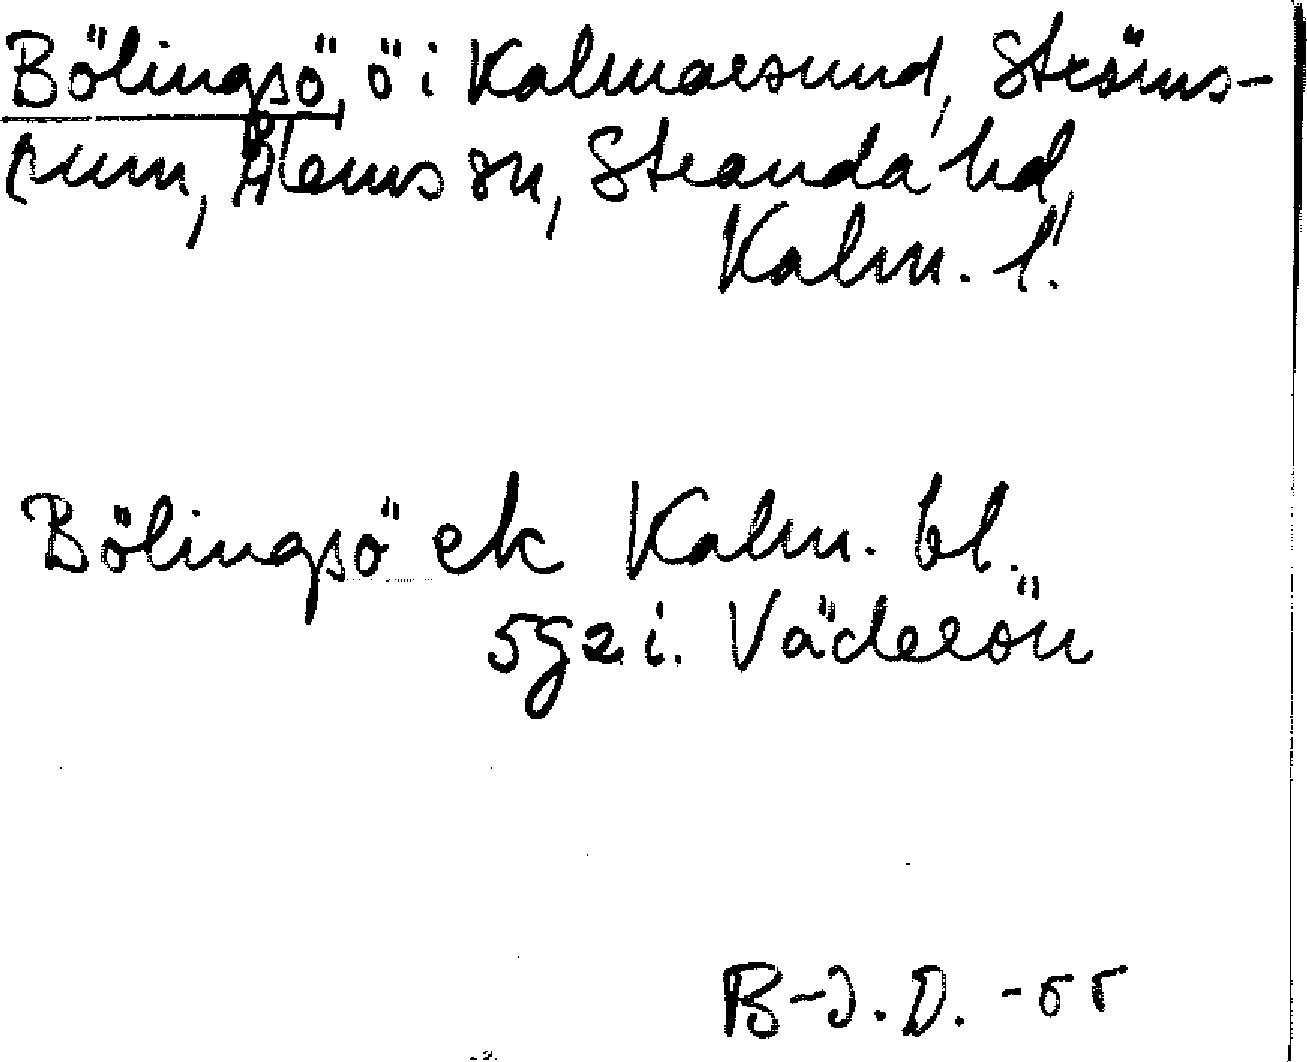 Bölingsö, ö i Kalmarsund, Ströms-
rum, Ålems sn, Stranda hd,
Kalm. l.
Bölingsö ek Kalm. bl.
5g2 i. Väderön
B-J. D. -55